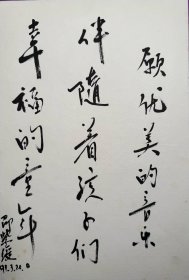 愿优美的音乐
伴随着孩子们
幸福的童年
92.3.20.